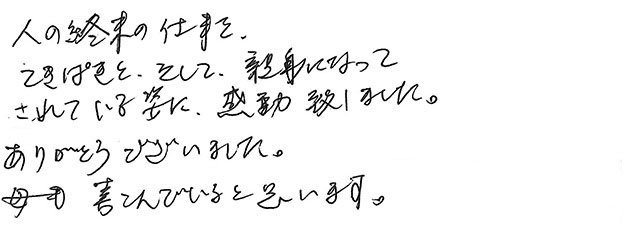 人の終末の仕事を、
てきぱきと、そして、親身になって
されている姿に、感動致しました。
ありがとうございました。
母も 喜こんでいると思います。